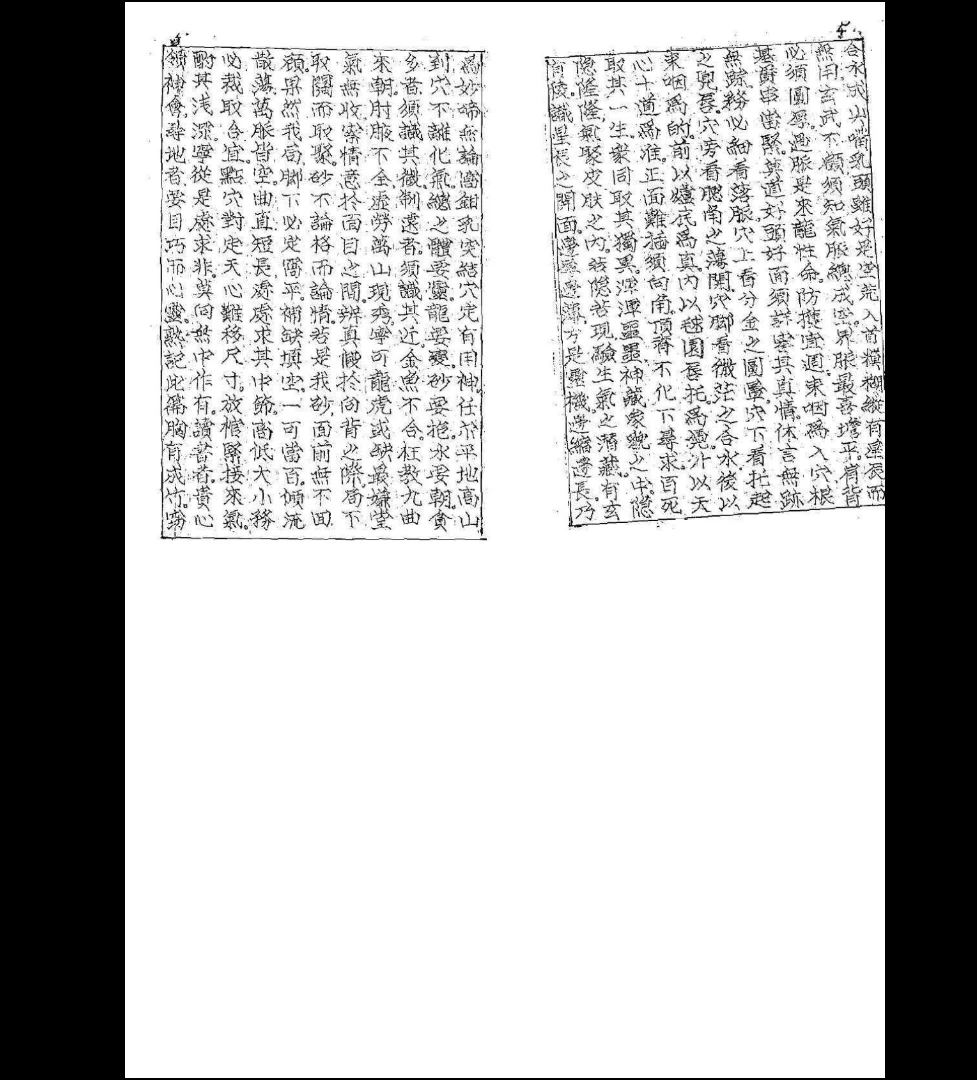 5
合水式尖嘴乳頭雖好是空荒入首模糊縱有星辰而
無用玄武不顧須知氣脈總成空界脈最喜墻平肩背
必須圓厚過脈是來龍性命防護宜週束咽為入穴根
基爵串當緊莫道好頭好面須詳其真情休言無跡
無踪務必細看落脈穴上看分金之圓暈穴下看托起
之兜唇穴旁看腮角之薄開穴脚看微茫之合水後以
束咽為的前以爐底為真內以毬圓唇托為凭外以天
心十道為准正面難插須向角頂脊不化下尋求百死
取其一生衆同取其獨異渾渾噩噩神藏象貌之中隱
隐隆隆氣聚皮肤之內若隱若現驗生氣之潛藏有玄
有陵識星辰之開面邊邊薄方是靈機邊縮邊長乃
為妙啼無論窩鉗乳突結穴定有用神任你平地高山
到穴不離化氣總之體要靈龍要變砂要抱水要朝貪
多者須識其微制遠者須識其近金魚不合枉教九曲
來朝肘腋不全虛勞萬山現秀寧可龍虎或缺最嫌堂
氣無收察情意扵面目之間辨真假扵向背之際局不
取闊而取聚砂不論格而論情若是我砂面前無不回
顧果然我局脚下必定窩平補缺填空一可當百傾流
散蕩萬脈皆空曲直短長處處求其中節高低大小務
必裁取合宜點穴對定天心難移尺寸放棺緊接來氣
酌其浅深寧從是處求非莫向無中作有讀書者貴心
領神會尋地者要目巧而心靈熟記此篇胸有成竹